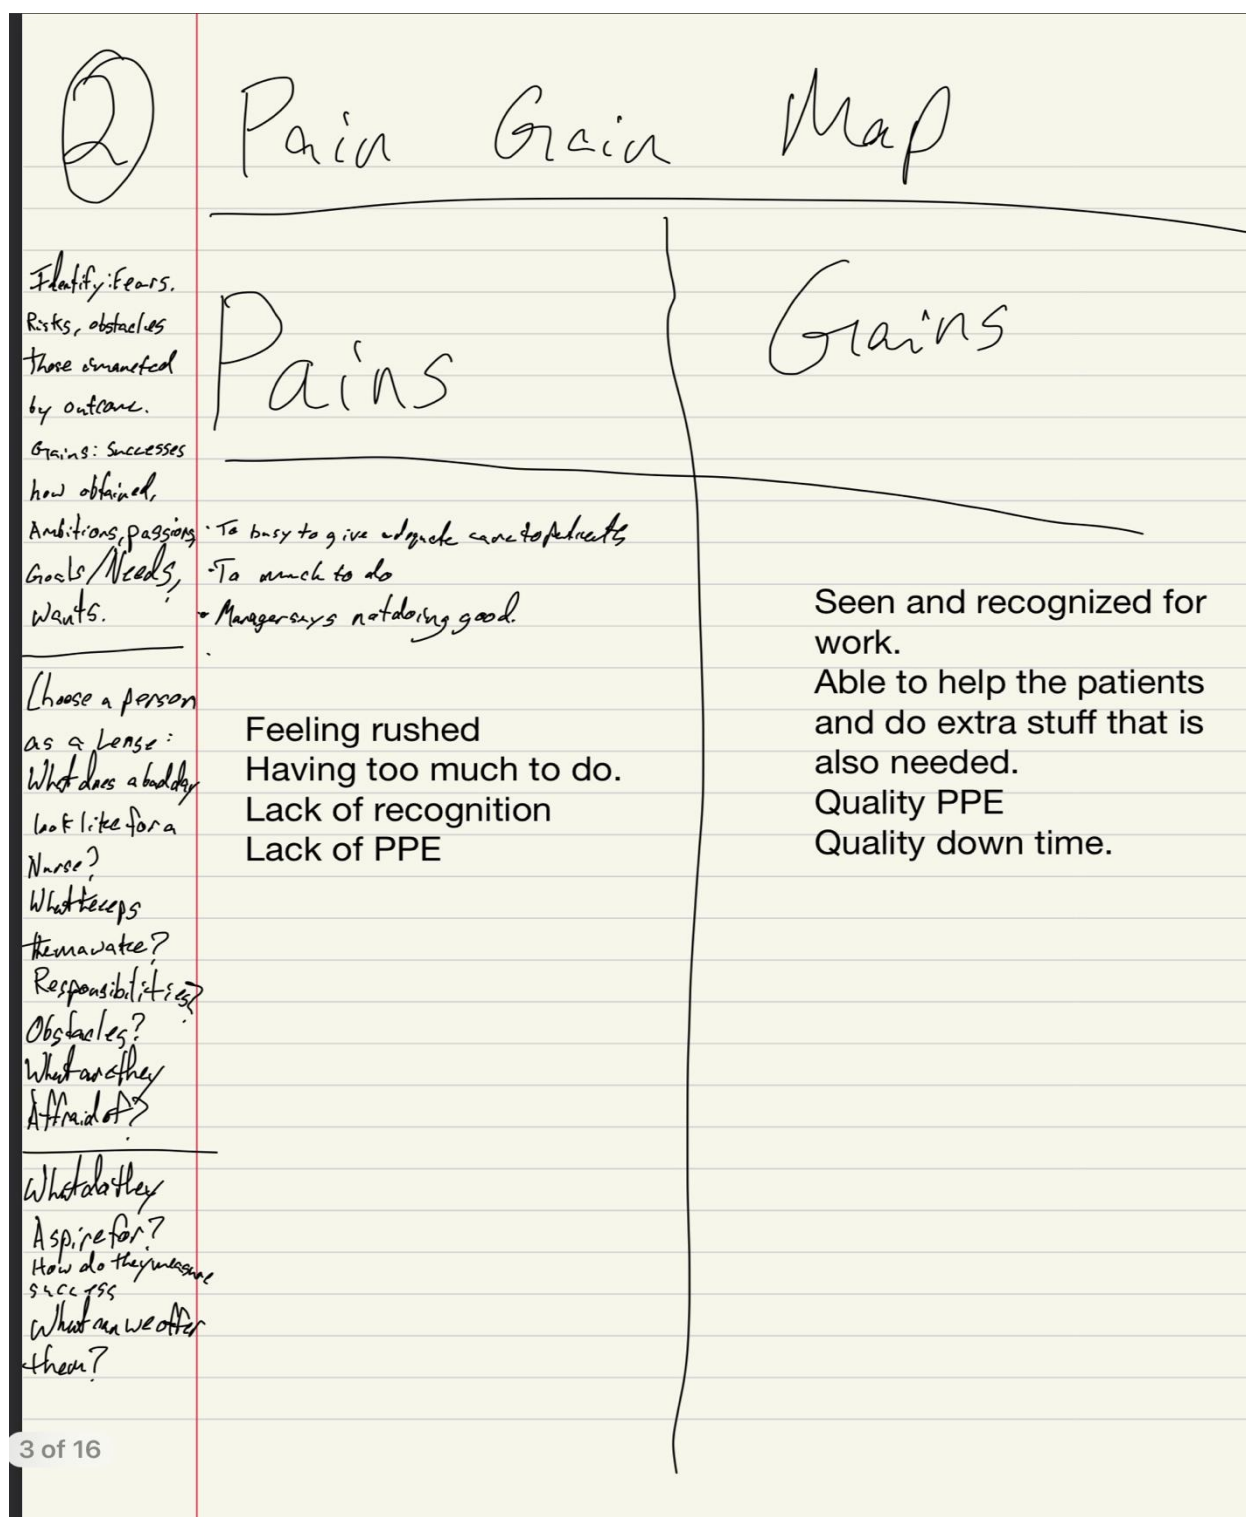 2 Pain Gain Map
Identify: Fears.
Risks, obstacles
those
by outcome.
Gains: Successes
how obtained,
Ambitions, passions
Goals/Needs,
wants.
Choose a person
as a Lense:
What does a bad day
look like for a
Nurse?
What keeps
them awake?
Responsibilities?
Obstacles?
What are they
Affraid of?
What do they
Aspire for?
How do they measure
success
What can we offer
them?
Pains
· To busy to give adequate care to patients
· To much to do
· Manager says not doing good.
·
Feeling rushed
Having too much to do.
Lack of recognition
Lack of PPE
Gains
Seen and recognized for
work.
Able to help the patients
and do extra stuff that is
also needed.
Quality PPE
Quality down time.
3 of 16